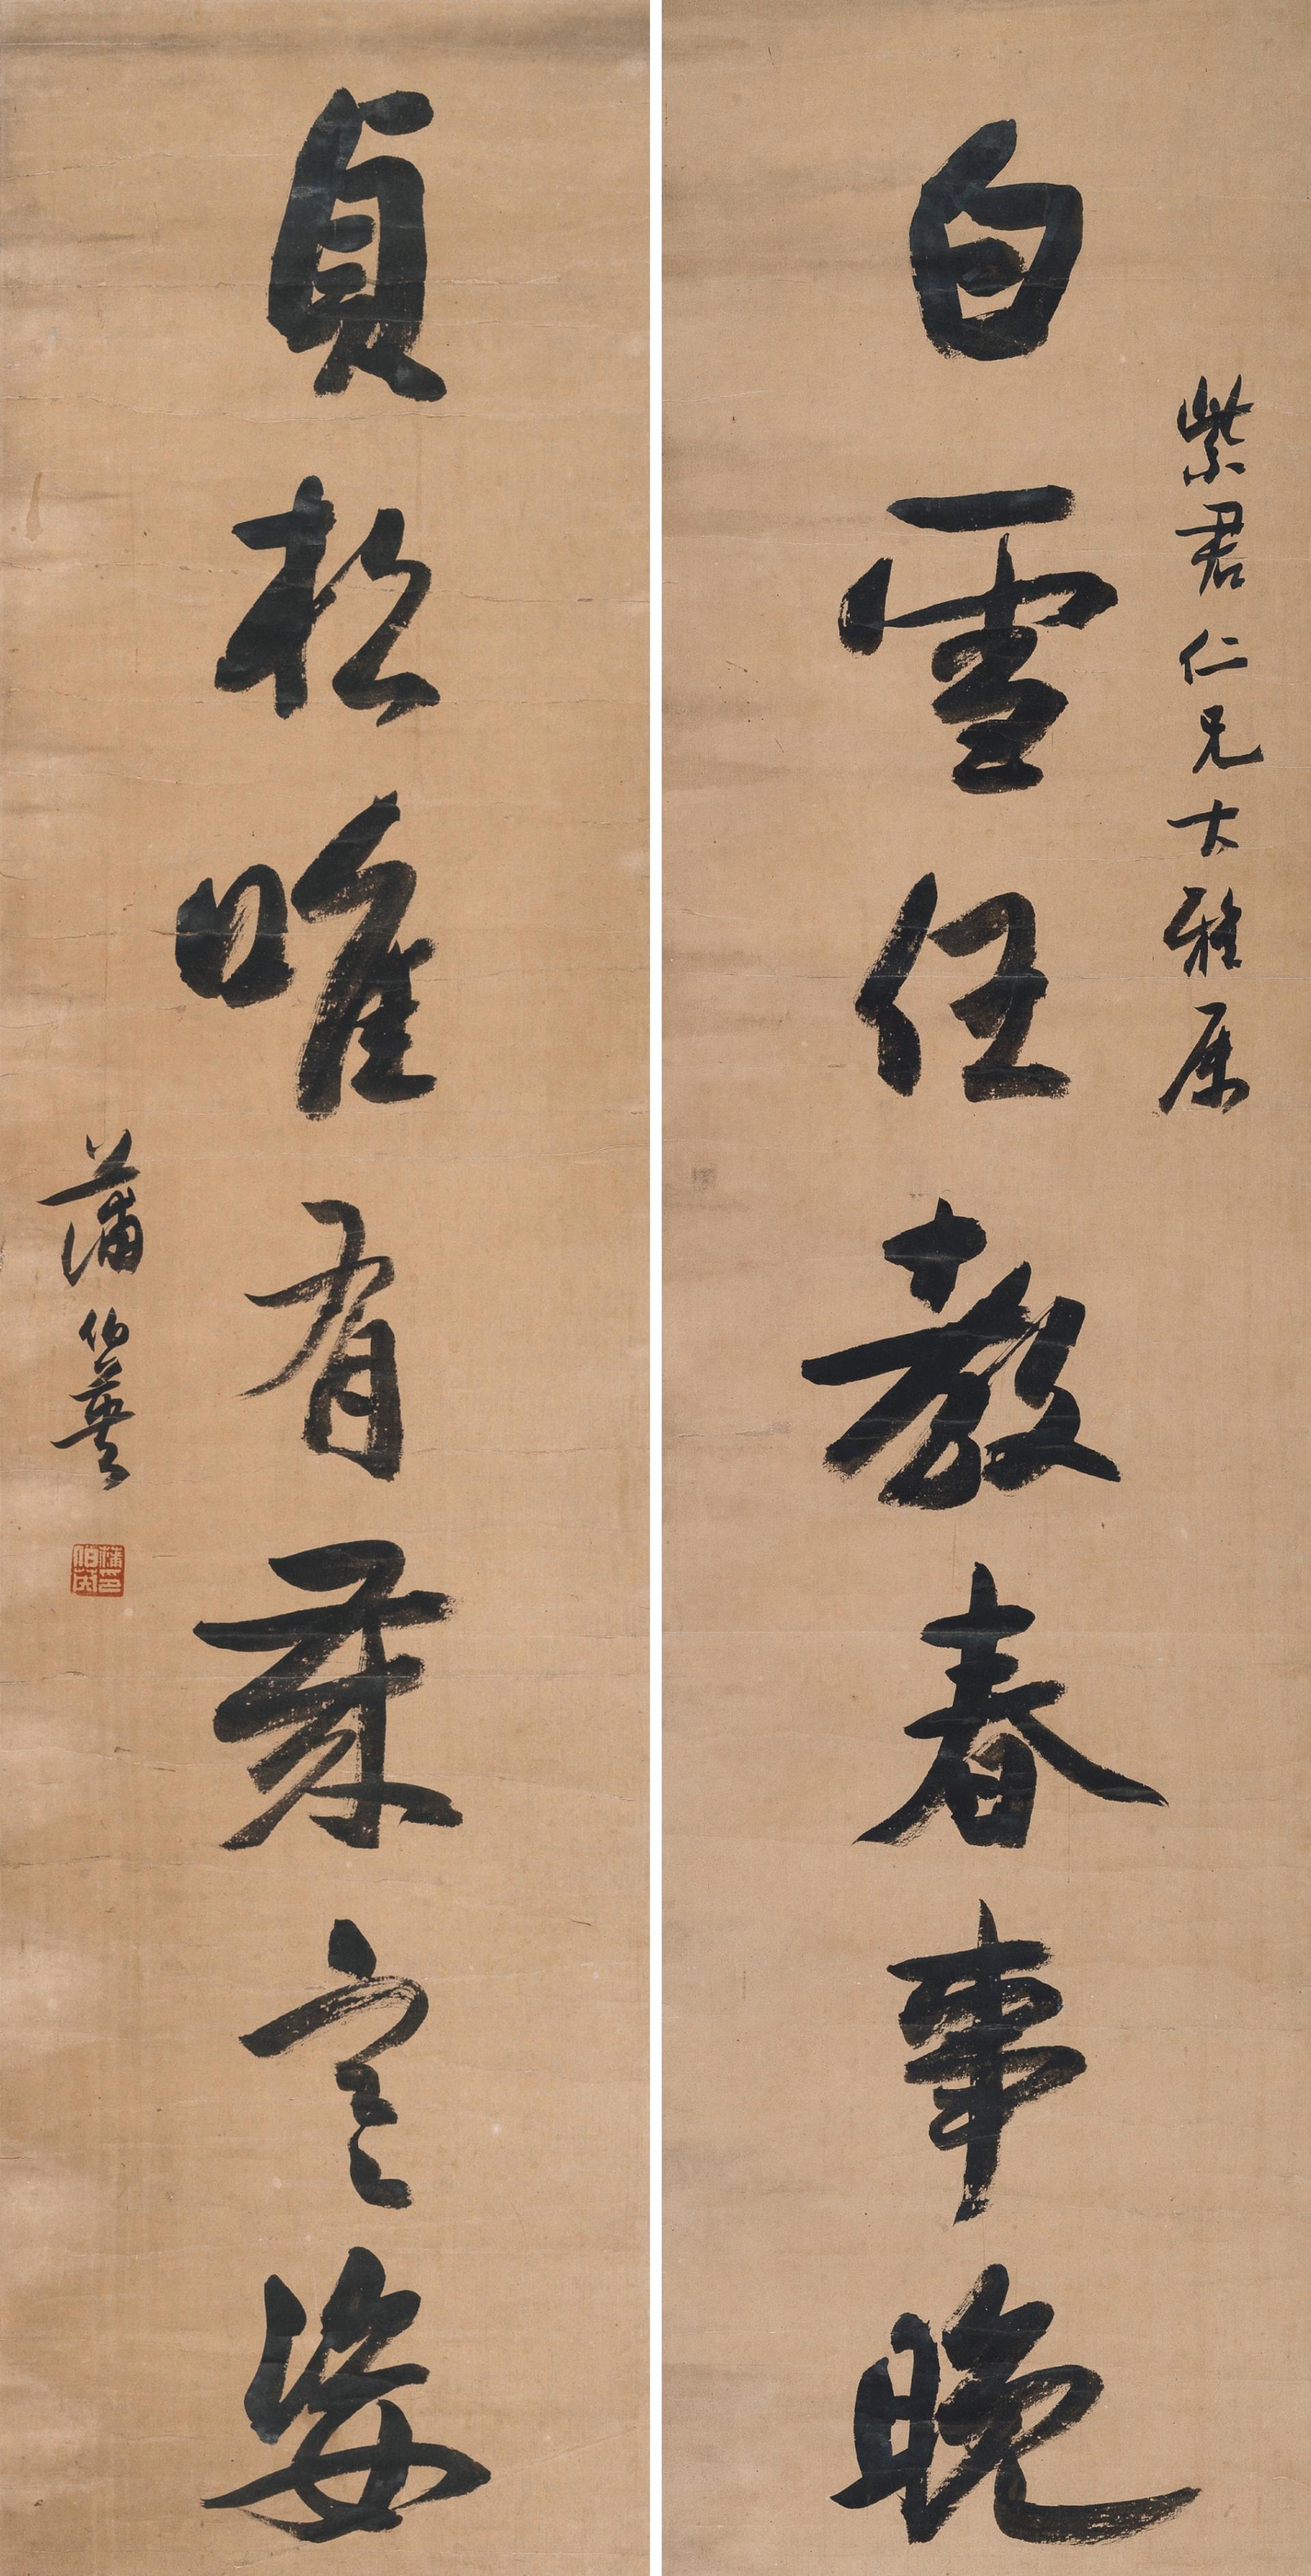 紫君仁兄大雅属
白雪任教春事晚
貞松唯有歲寒姿
蒲伯英
蒲印伯英